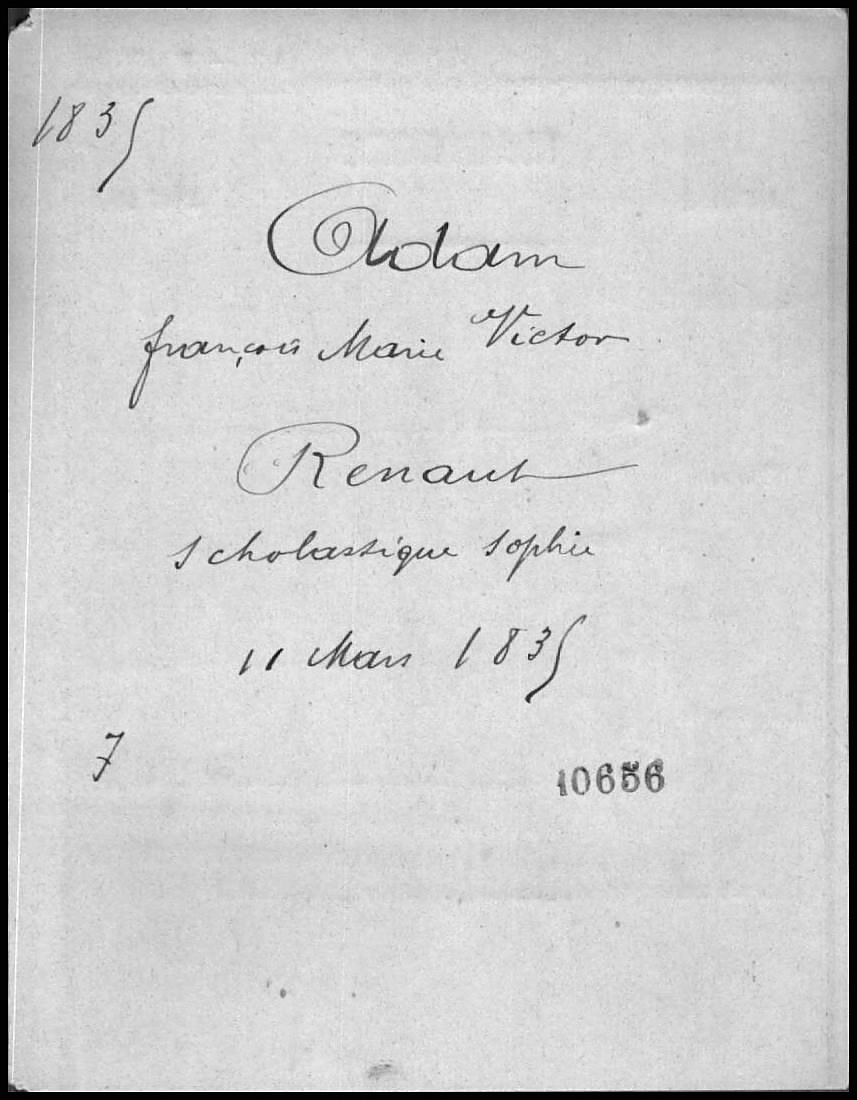 1835
Addam
françois Marie Victor
Renaut
scholastique sophie
11 Mars 1835
7
10656